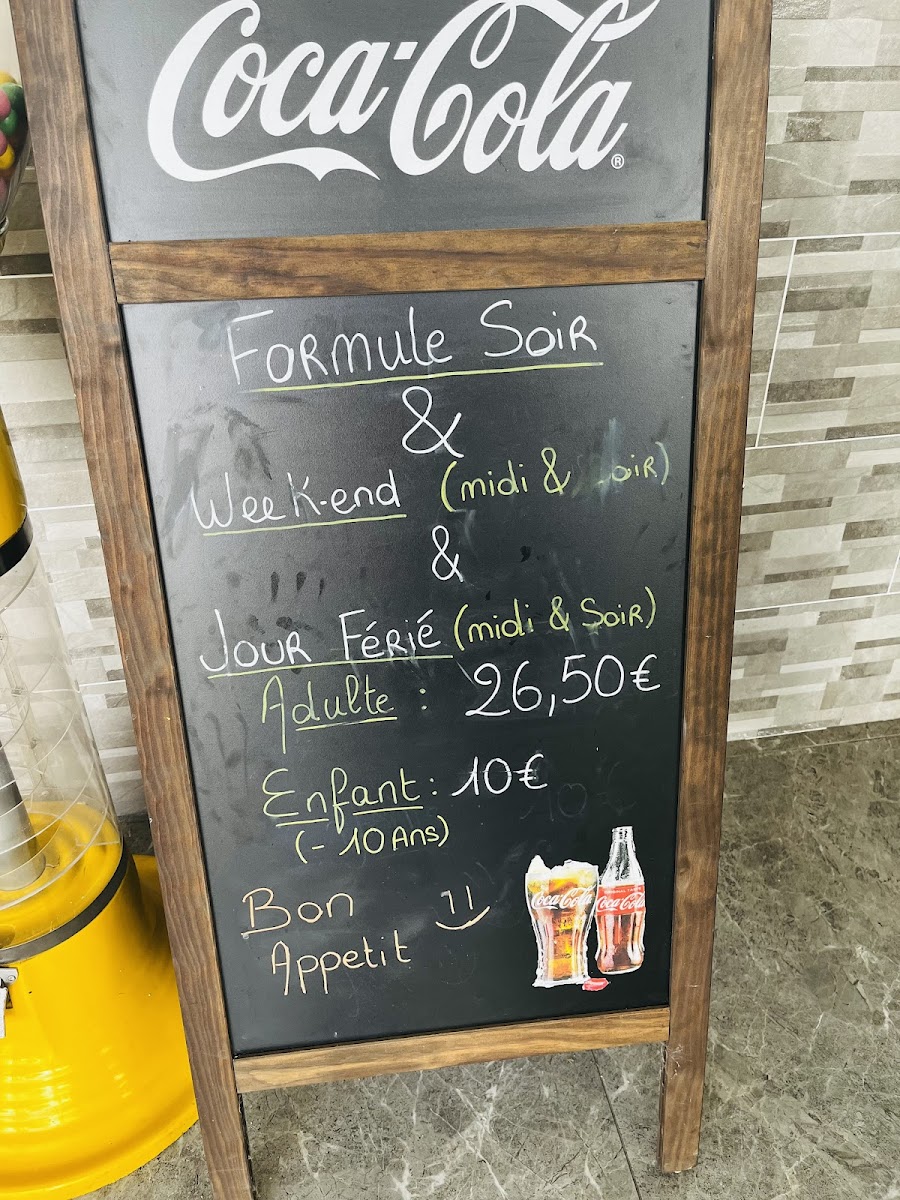 Coca-Cola®
Formule Soir
&
Week-end (midi & Soir)
&
Jour Férié (midi & Soir)
Adulte : 26,50€
Enfant : 10€
(- 10 Ans)
Bon
Appetit
Coca-Cola Coca-Cola